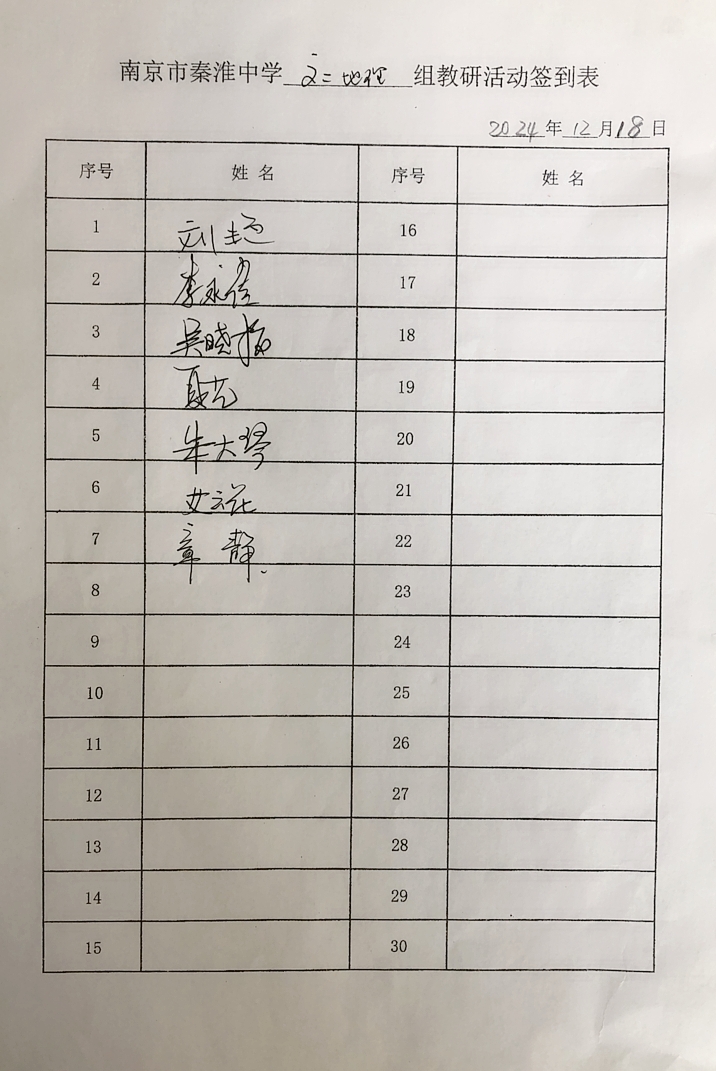 南京市秦淮中学 高二地理 组教研活动签到表
2024年12月18日
序号 姓名 序号 姓名
1 刘 16
2 李永 17
3 吴晓 18
4 夏艺 19
5 朱大琴 20
6 艾云 21
7 章静 22
8 23
9 24
10 25
11 26
12 27
13 28
14 29
15 30